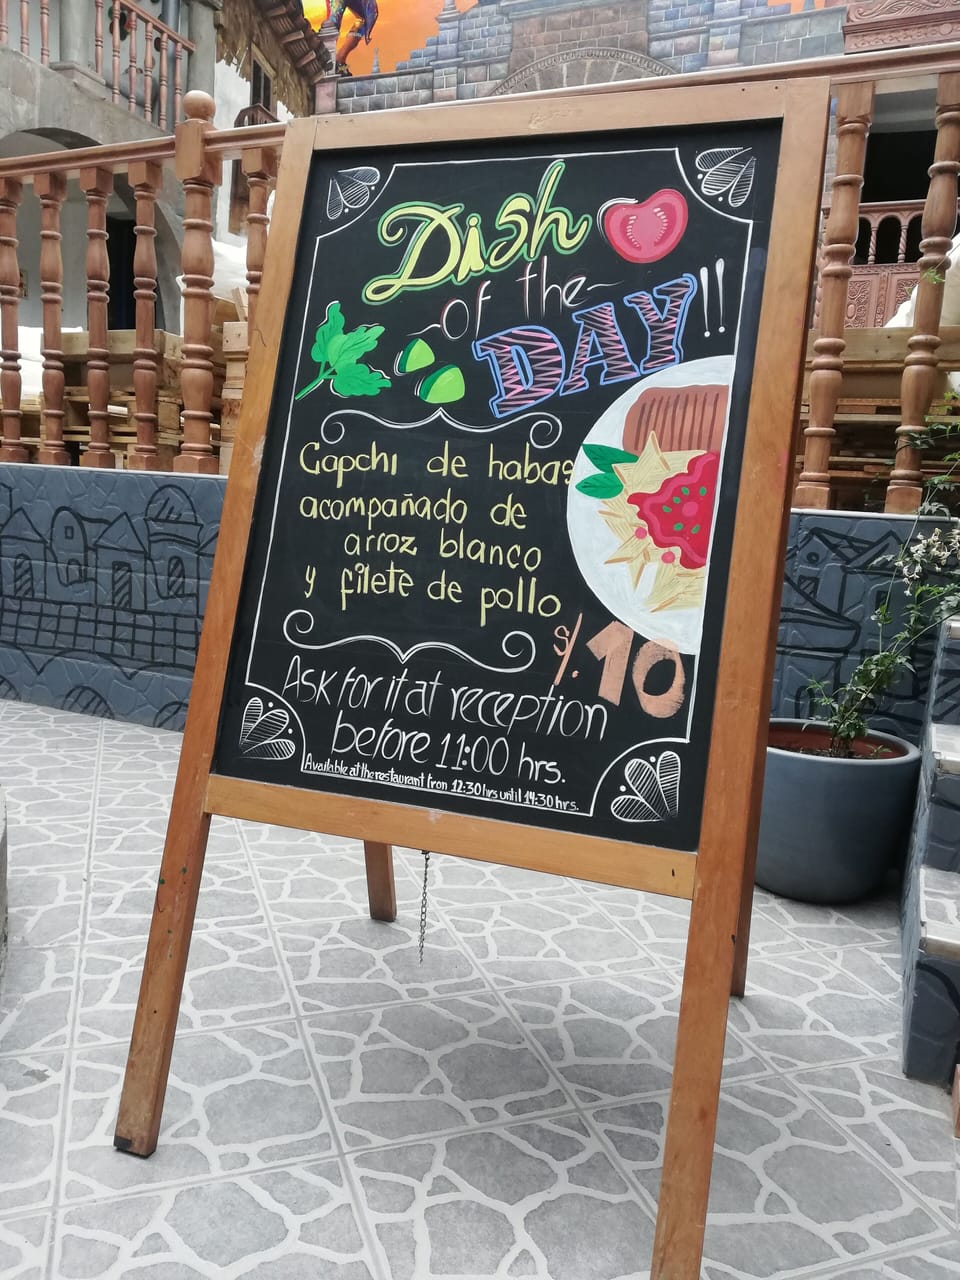 Dish
of the
DAY!!
Capchi de habas
acompañado de
arroz blanco
y filete de pollo
S/.10
ASK for it at reception
before 11:00 hrs.
Available at the restaurant fron 12:30 hrs until 14:30 hrs.